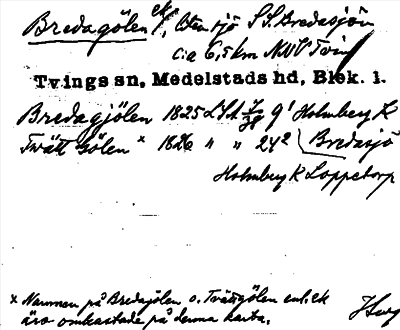 Bredagölen ek/, liten sjö S S. Bredasjön
c:a 6,5 km NNV Tving
Tvings sn, Medelstads hd, Blek. l.
Bredagjölen 1825 LSA 9' Holmberg K
Tvätt Gölen x 1826 " " 242 Bredasjö
Holmberg K Loppetorp
x Namnen på Bredagölen o. Tvättgölen enl. ek
äro omkastade på denna karta.